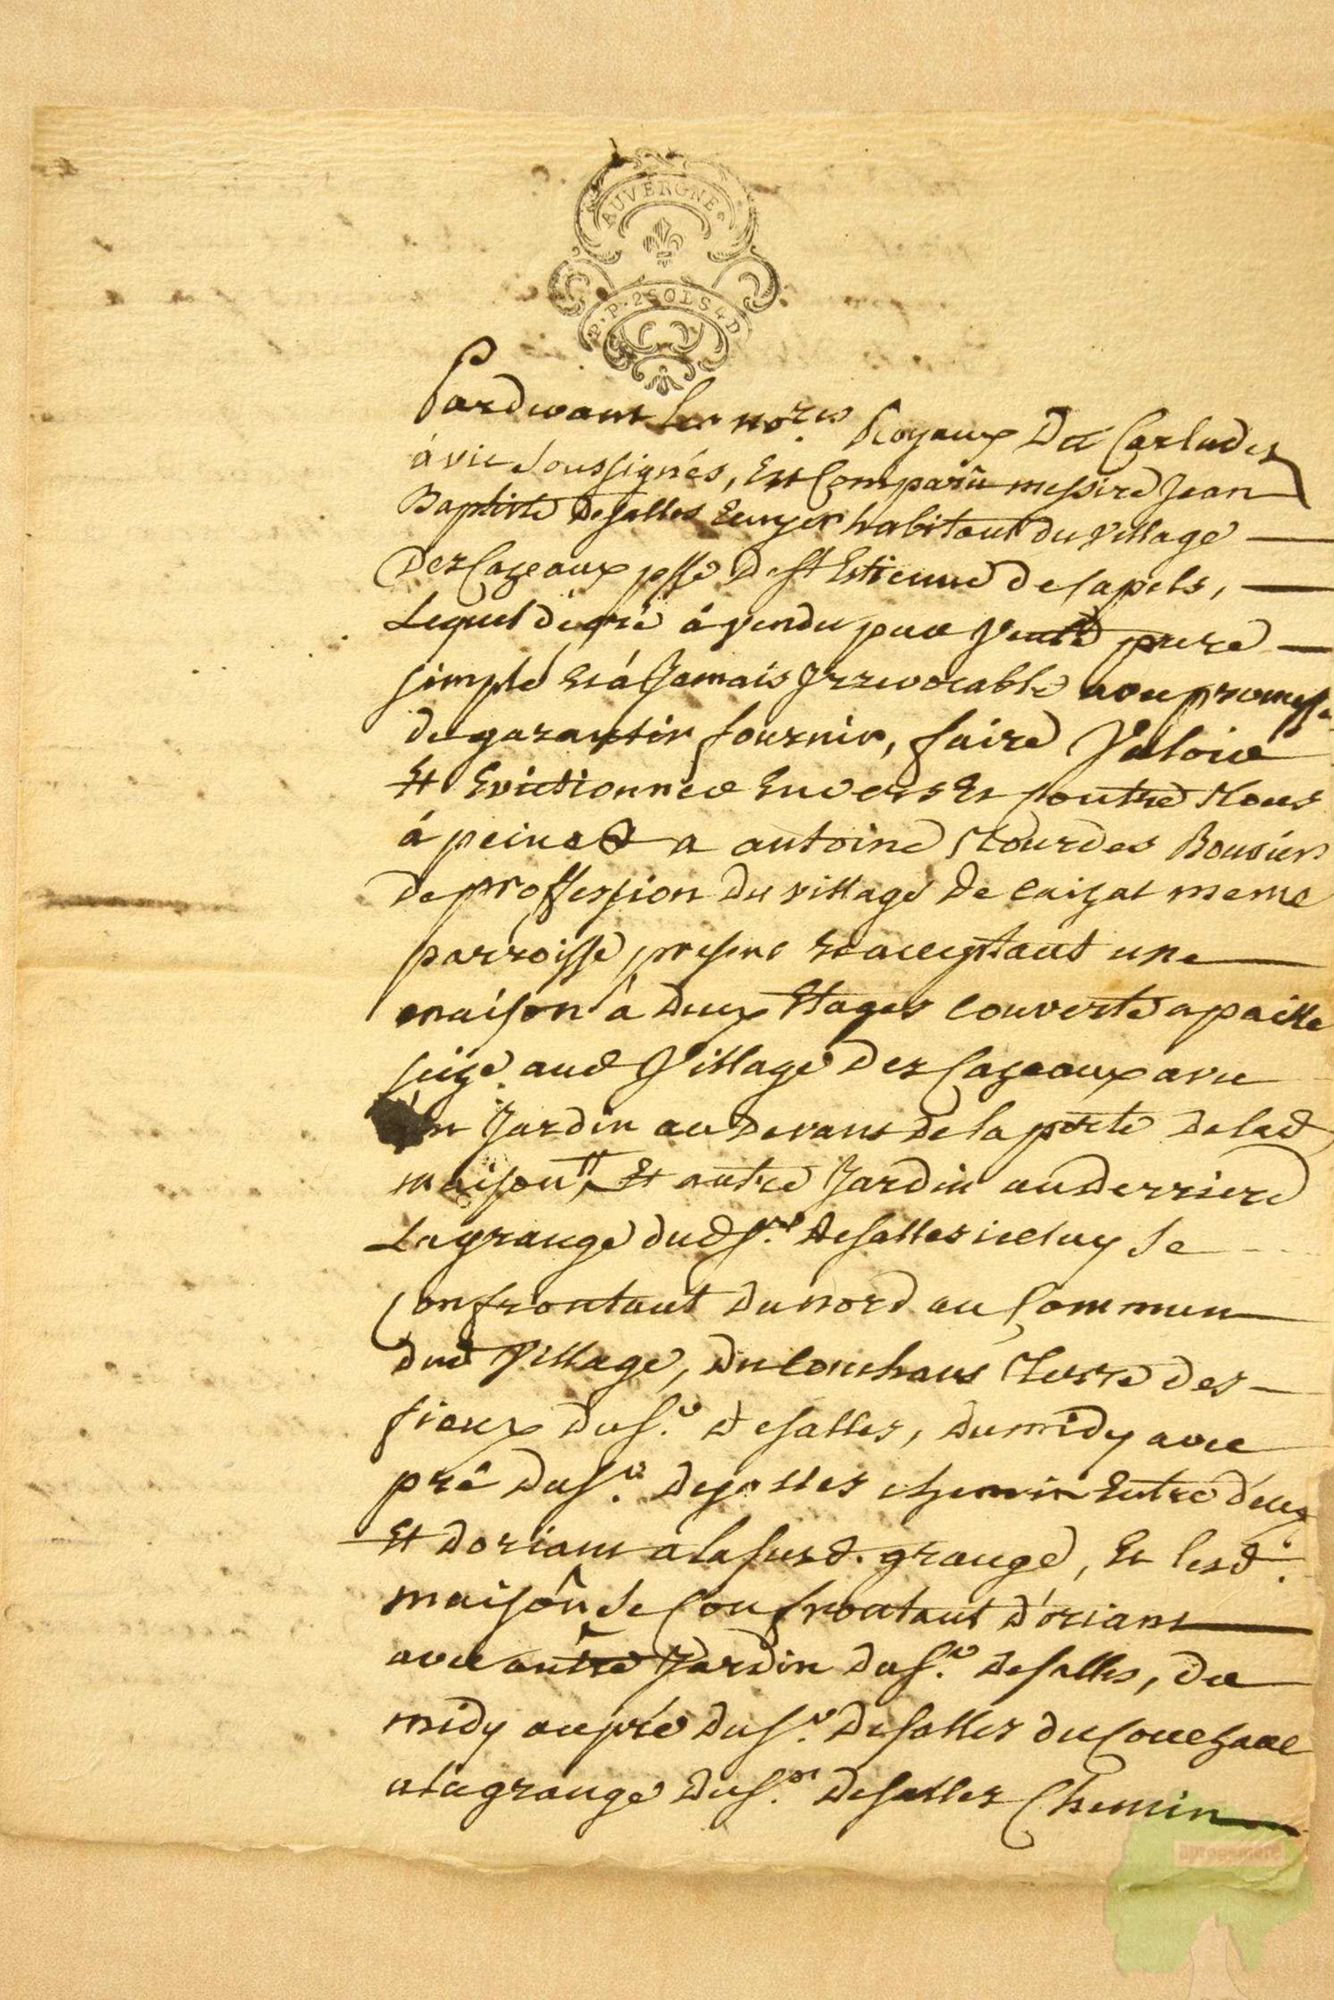 AUVERGNE
P. P. 2 SOLS 4 D
Pardevant les no.res Royaux De Carlades
à vic Soussignés, Est Comparu messire Jean
Baptiste Desalles Ecuyer habitant du village
Des Cazeaux psse De St Estienne de Capels,
Lequel de gré à vendu par Vente pure
simple et à Jamais Irrevocable avec promesse
de garantir fournir, faire Valoir
Et Evictionner Envers Et Contre tous
à peine & a antoine Bousier
de proffession du village De Caizat meme
parroisse, present Et acceptant une
maison à deux Etages couverte a paille
size aud Village Des Cazeaux avec
un Jardin au Devant De la porte De lad
maison, Et autre Jardin au Derriere
La grange dud Sr. Desalles iceluy Se
Confrontant Du nord au Commun
dud Village, Du Couchant Terre Des
fieux du Sr. Desalles, Du midy avec
pré du Sr. Desalles chemin Entre deux
Et D'oriant a la susd. grange, Et lesd.
maison Se Confrontant D'oriant
avec autre Jardin du Sr. Desalles, De
midy au pré Du Sr. Desalles du Couchant
a la grange du Sr. Desalles Chemin